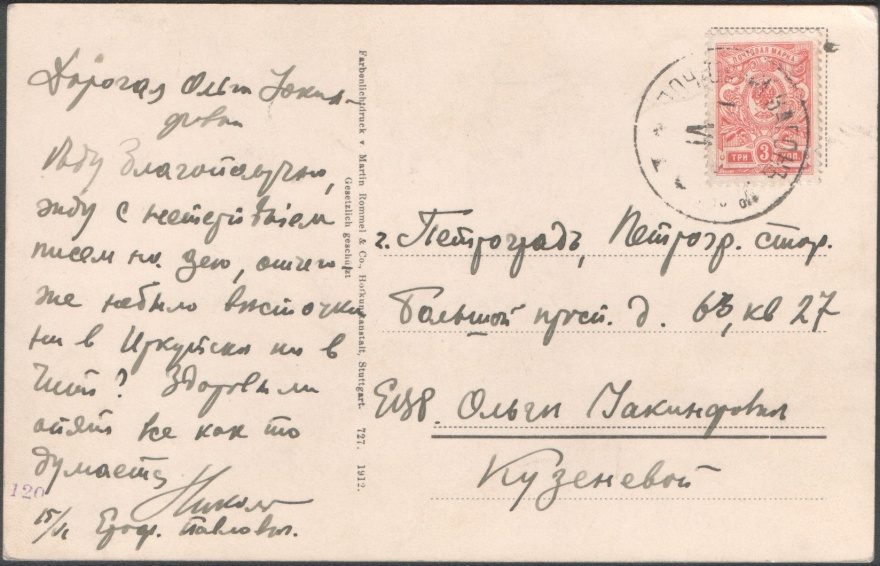 Дорогая Ольга Iакин-
фовна
Еду благополучно,
жду с нетерпѣнiем
писем но зею, отчего
же небыло весточки
ни в Иркутске ни в
Чите? Здоровы ли
опять все как то
думается
Николай
15/VI Ероф. Павлович.
120
Farbenlichtdruck v. Martin Rommel & Co., Hofkunstanstalt, Stuttgart. 727. 1912.
Gesetzlich geschützt
ПОЧТОВАЯ МАРКА
ТРИ 3 КОП.
VI
г. Петроградъ, Петрогр. стор.
Большой просп. д. 63, кв 27
ЕЦВ. Ольги Iакинфовны
Кузеневой